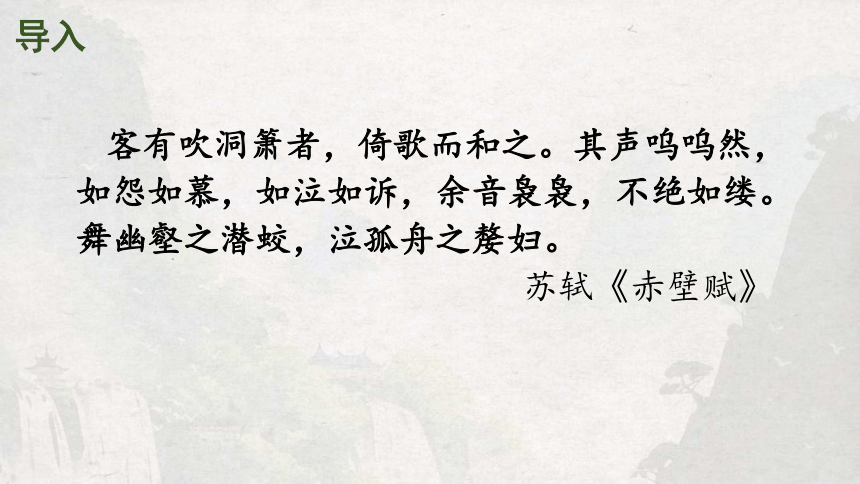 导入
客有吹洞箫者，倚歌而和之。其声呜呜然，
如怨如慕，如泣如诉，余音袅袅，不绝如缕。
舞幽壑之潜蛟，泣孤舟之嫠妇。
苏轼《赤壁赋》